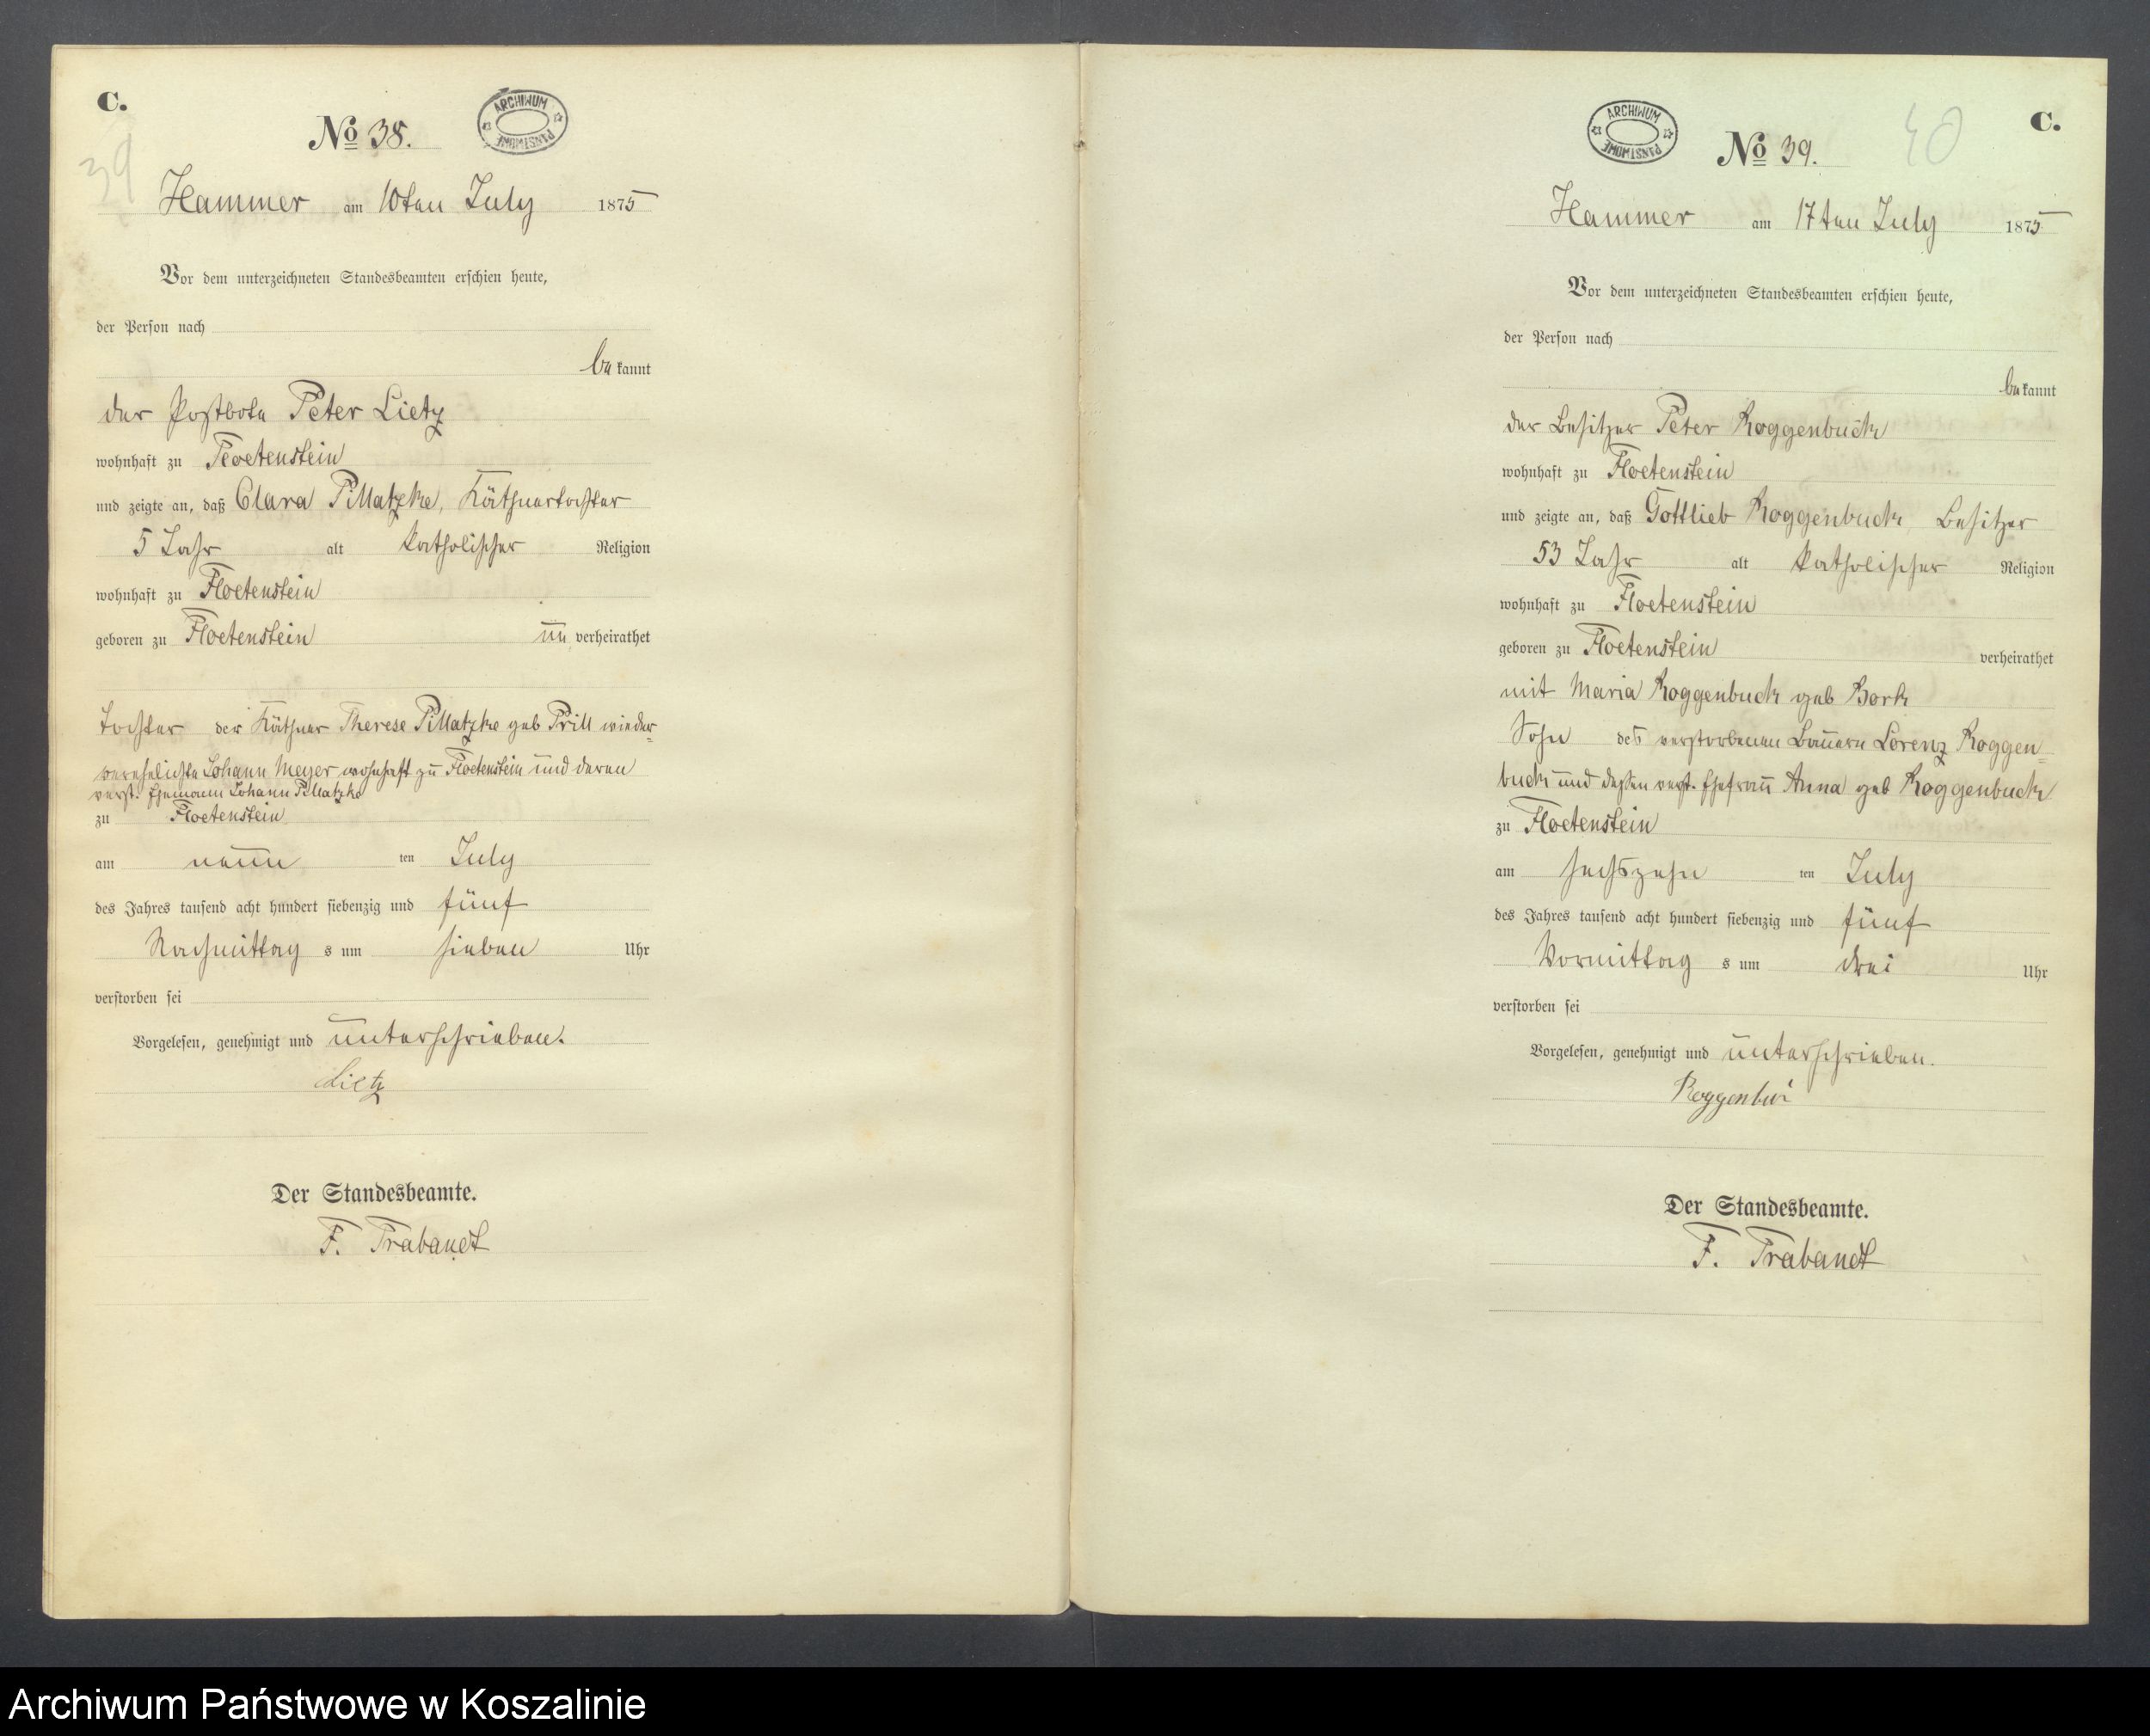 C.
39
No 38.
ARCHIWUM PAŃSTWOWE
Hammer am 10ten July 1875
Vor dem unterzeichneten Standesbeamten erschien heute,
der Person nach
be kannt
der Postbote Peter Lietz
wohnhaft zu Floetenstein
und zeigte an, daß Clara Pillatzke, Käthnertochter
5 Jahr alt katholischer Religion
wohnhaft zu Floetenstein
geboren zu Floetenstein un verheirathet
Tochter der Käthner Therese Pillatzke geb Prill wieder-
verehelichte Johann Meyer, wohnhaft zu Floetenstein und deren
verst. Ehemann Johann Pillatzke
zu Floetenstein
am neun ten July
des Jahres tausend acht hundert siebenzig und fünf
Nachmittag s um sieben Uhr
verstorben sei
Vorgelesen, genehmigt und unterschrieben.
Lietz
Der Standesbeamte.
F. Trabandt
ARCHIWUM PAŃSTWOWE
No 39.
40
C.
Hammer am 17ten July 1875
Vor dem unterzeichneten Standesbeamten erschien heute,
der Person nach
be kannt
der Besitzer Peter Roggenbuck
wohnhaft zu Floetenstein
und zeigte an, daß Gottlieb Roggenbuck, Besitzer
53 Jahr alt katholischer Religion
wohnhaft zu Floetenstein
geboren zu Floetenstein verheirathet
mit Maria Roggenbuck geb Bork
Sohn des verstorbenen Bauern Lorenz Roggen-
buck und deßen verst. Ehefrau Anna geb Roggenbuck
zu Floetenstein
am sechszehn ten July
des Jahres tausend acht hundert siebenzig und fünf
Vormittag s um drei Uhr
verstorben sei
Vorgelesen, genehmigt und unterschrieben.
Roggenbu
Der Standesbeamte.
F. Trabandt
Archiwum Państwowe w Koszalinie